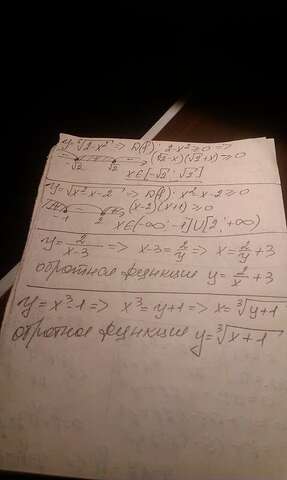 y=√2-x² => D(f): 2-x²≥0 =>
-√2 √2 (√2-x)(√2+x)≥0
x∈[-√2; √2]
y=√x²-x-2 => D(f): x²-x-2≥0
-1 2 (x-2)(x+1)≥0
x∈(-∞; -1]∪[2; +∞)
y=2/(x-3) => x-3=2/y => x=2/y+3
обратное функцие y=2/x+3
y=x³-1 => x³=y+1 => x=³√y+1
обратное функцие y=³√x+1